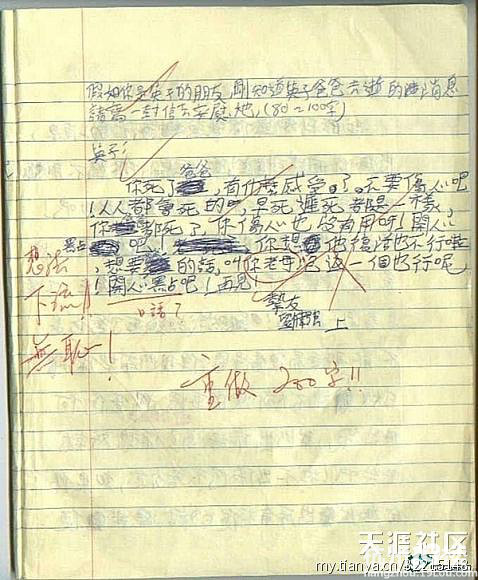 假如你是英子的朋友,剛知道英子爸爸去逝的消息
請寫一封信去安慰她,(80~100字)
英子:
爸爸
你死了,有什麼感受。了。不要傷心吧
!人人都會死的,早死遲死都是一樣,
你都死了,你傷心也沒有用呀!開心
點吧!你想他復活也不行啦
,想要的話,叫你老母造一個也行呢,
!開心點吧!再見!
口語?
摯友
上
想法
下流!!
無恥!
重做 200字!!
天涯社区
my.tianya.cn